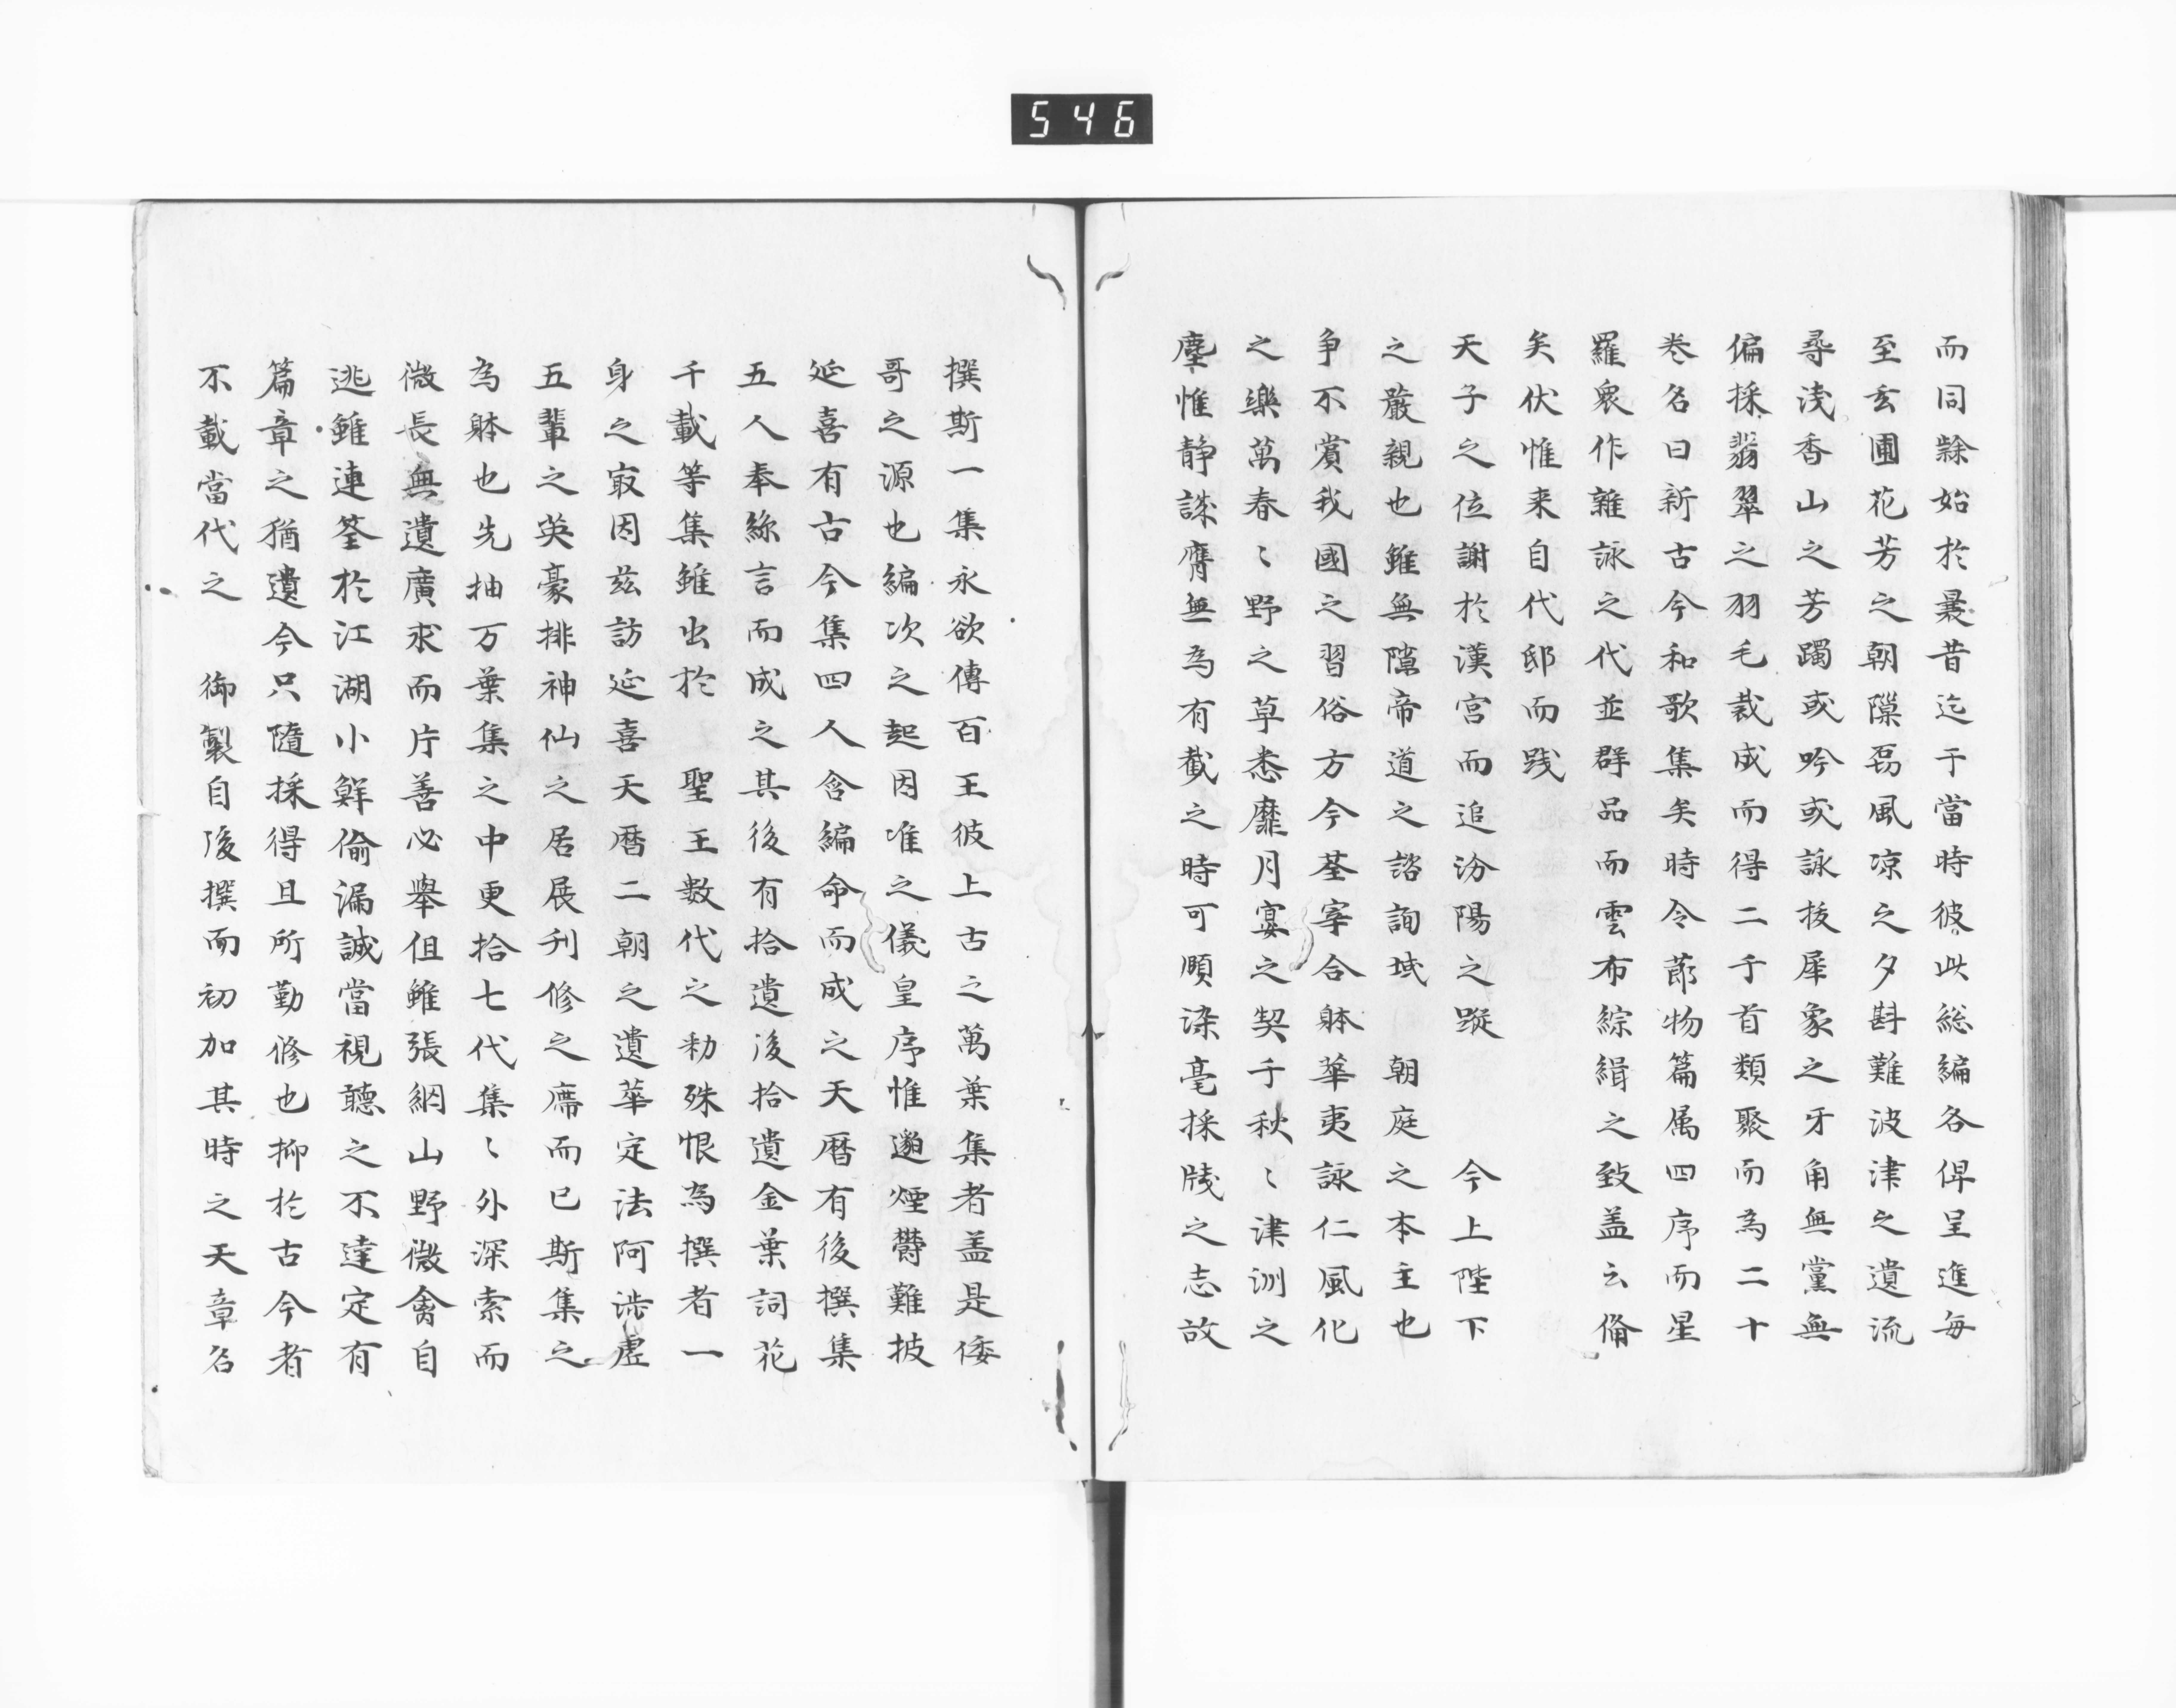 546
而同隸始於曩昔迄于當時彼此総編各俾呈進毎
至玄圃花芳之朝隟砌風凉之夕斟難波津之遺流
尋浅香山之芳躅或吟或詠抜犀象之牙角無黨無
偏採翡翠之羽毛裁成而得二千首類聚而為二十
巻名曰新古今和歌集矣時令莭物篇属四序而星
羅衆作雜詠之代並群品而雲布綜緝之致盖云俻
矣伏惟来自代邸而践
天子之位謝於漢宮而追汾陽之蹤　今上陛下
之嚴親也雖無隙帝道之諮詢域　朝庭之本主也
争不賞我國之習俗方今荃宰合躰華夷詠仁風化
之樂萬春〻野之草悉靡月宴之契千秋〻津洲之
塵惟静誅膺無為有截之時可頤染毫採牋之志故
撰斯一集永欲傳百王彼上古之萬葉集者盖是倭
哥之源也編次之起因准之儀皇序惟邈煙欝難披
延喜有古今集四人含編命而成之天暦有後撰集
五人奉絲言而成之其後有拾遺後拾遺金葉詞花
千載等集雖出於　聖王數代之勅殊恨為撰者一
身之冣因茲訪延喜天暦二朝之遺華定法阿渉虚
五輩之英豪排神仙之居展刋修之席而已斯集之
為躰也先抽万葉集之中更拾七代集〻外深索而
微長無遺廣求而片善必舉但雖張網山野微禽自
逃雖連筌於江湖小鮮偷漏誠當視聽之不達定有
篇章之猶遺今只隨採得且所勤修也抑於古今者
不載當代之　御製自後撰而初加其時之天章各